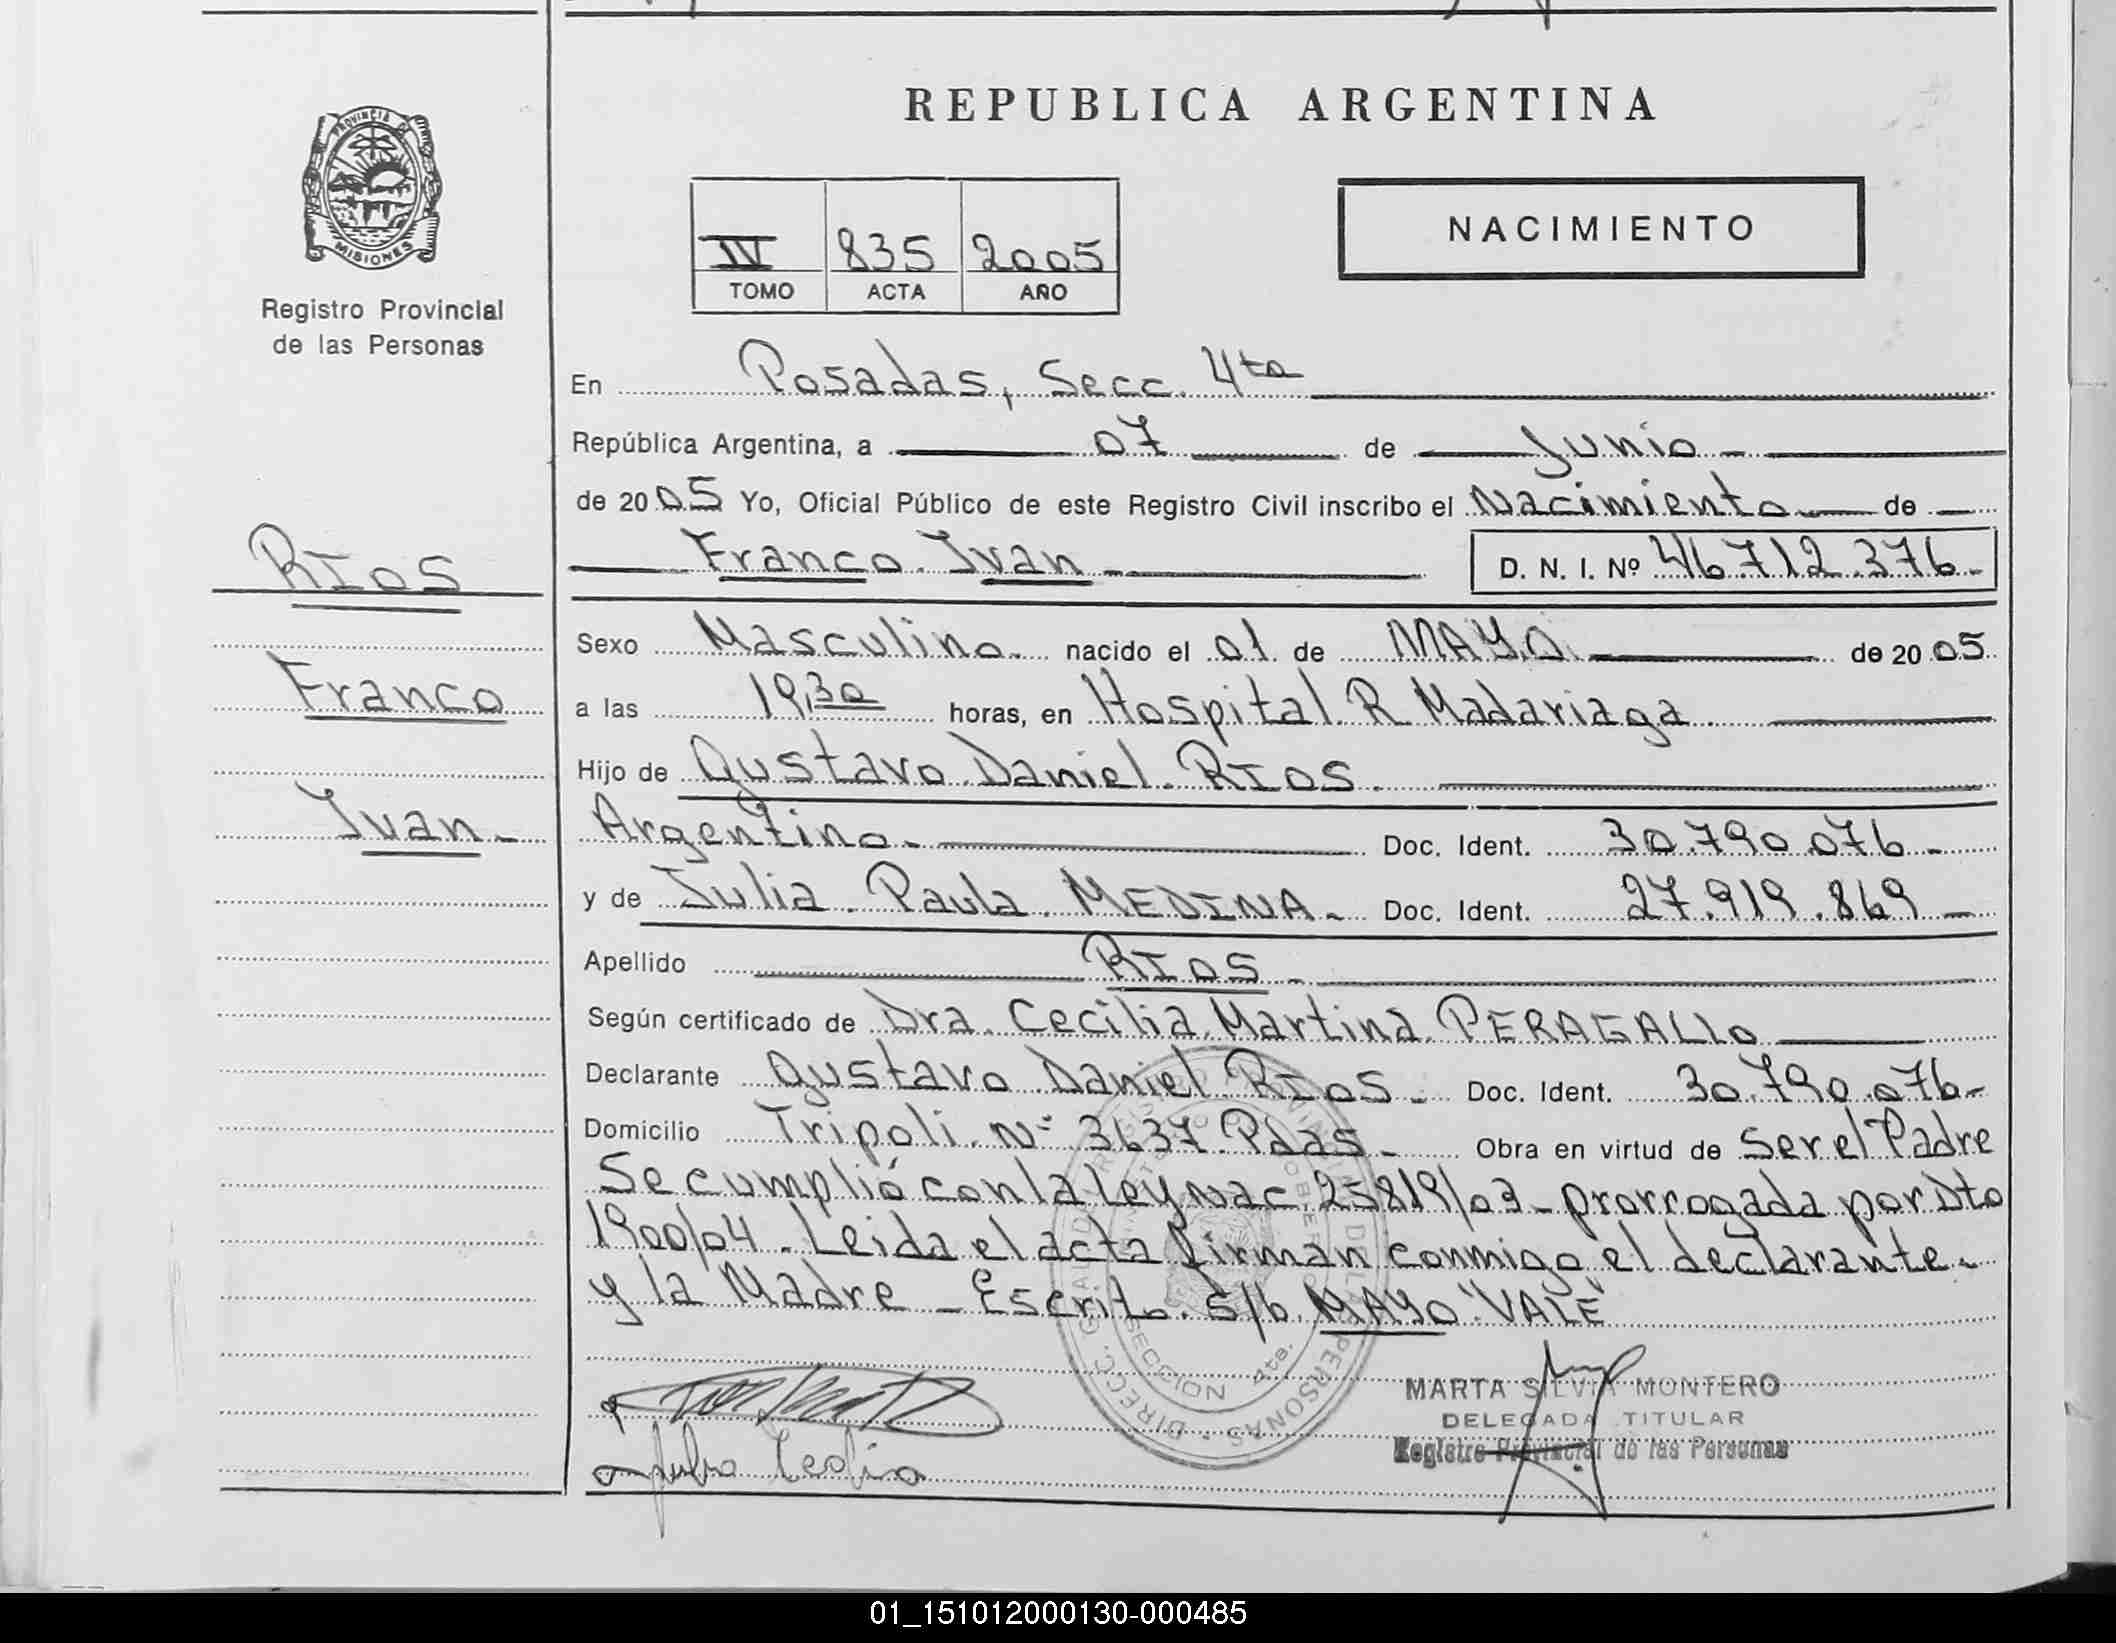 REPUBLICA ARGENTINA
PROVINCIA DE
MISIONES
Registro Provincial
de las Personas
NACIMIENTO
IV 835 2005
TOMO ACTA AÑO
En Posadas, Secc. 4ta
República Argentina, a 07 de Junio
de 2005 Yo, Oficial Público de este Registro Civil inscribo el Nacimiento de
Franco Ivan D. N. I. Nº 46.712.376
RIOS
Franco
Ivan
Sexo Masculino nacido el 01 de MAYO de 2005
a las 19,30 horas, en Hospital R Madariaga
Hijo de Gustavo Daniel RIOS
Argentino Doc. Ident. 30.790.076
y de Julia Paula MEDINA Doc. Ident. 27.919.869
Apellido RIOS
Según certificado de Dra. Cecilia Martina PERAGALLO
Declarante Gustavo Daniel RIOS Doc. Ident. 30.790.076
Domicilio Tripoli Nº 3637 Pdas Obra en virtud de Ser el Padre
Se cumplió con la ley nac 25819/03 - prorrogada por Dto
1900/04 - Leida el acta firman conmigo el declarante
y la Madre - Escrito s/b MAYO "VALE"
SECCION 4ta.
MARTA SILVIA MONTERO
DELEGADA TITULAR
Registro Provincial de las Personas
01_151012000130-000485